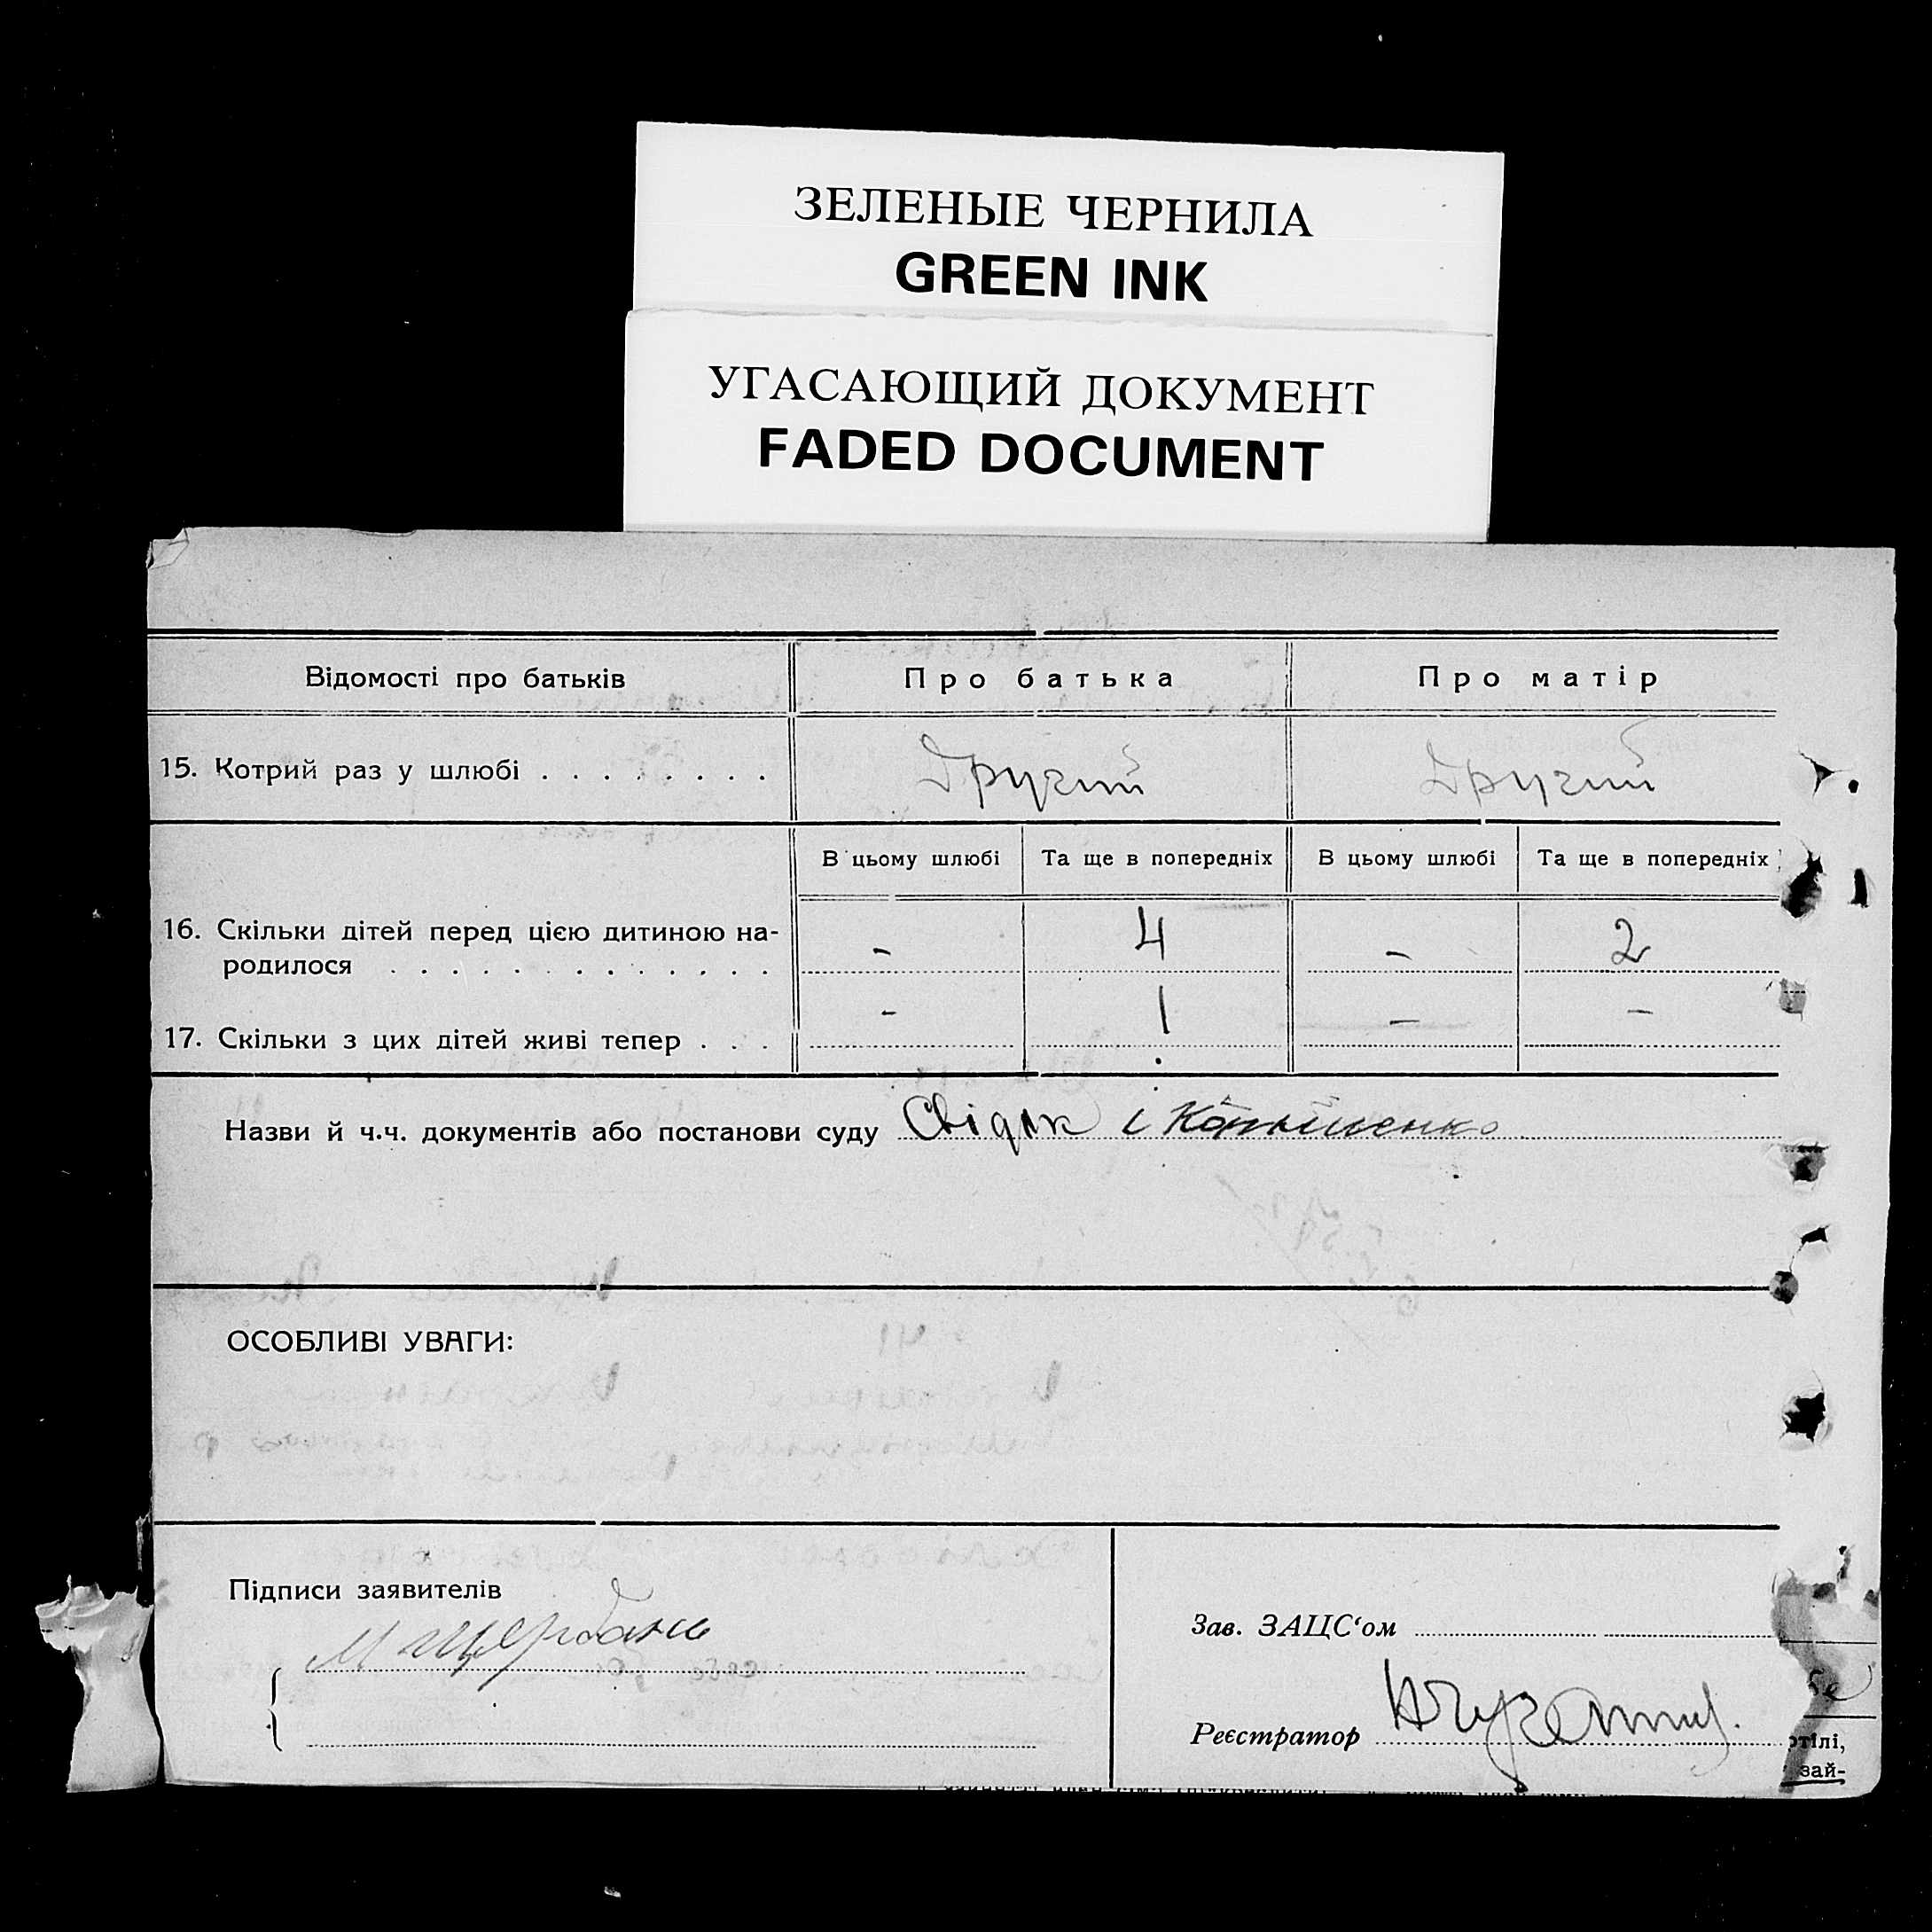 ЗЕЛЕНЫЕ ЧЕРНИЛА
GREEN INK
УГАСАЮЩИЙ ДОКУМЕНТ
FADED DOCUMENT
Відомості про батьків Про батька Про матір
15. Котрий раз у шлюбі . . . . . . . . Другий Другий
В цьому шлюбі Та ще в попередніх В цьому шлюбі Та ще в попередніх
16. Скільки дітей перед цією дитиною на-
родилося . . . . . . . . . . . . . - 4 - 2
17. Скільки з цих дітей живі тепер . . . - 1 - -
Назви й ч.ч. документів або постанови суду Свідок і
ОСОБЛИВІ УВАГИ:
Підписи заявителів
М Щербань
Зав. ЗАЦС‘ом
Реєстратор
отілі,
зай-